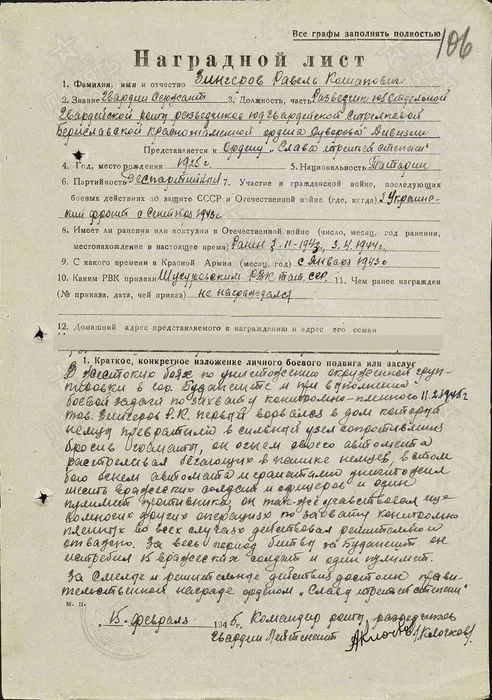 Все графы заполнять полностью
106
Наградной лист
1. Фамилия, имя и отчество Зингеров Равель Кошапович
2. Звание Гвардии Сержант 3. Должность, часть Разведчик Отдельной
Гвардейской роты разведчиков Гвардейской Стрелковой
Бериславской Краснознаменной ордена Суворова Дивизии
Представляется к Ордену "Слава третьей степени"
4. Год, место рождения 1925 г. 5. Национальность Татарин
6. Партийность Беспартийный 7. Участие в гражданской войне, последующих
боевых действиях по защите СССР и Отечественной войне (где, когда) 3 Украин-
ский фронт с Сентября 1943 г
8. Имеет ли ранения или контузии в Отечественной войне (число, месяц, год ранения,
местонахождение в настоящее время) Ранен 3.4.1944 г.
9. С какого времени в Красной Армии (месяц, год) с Января 1943 г
10. Каким РВК призван РВК Тат. ССР. 11. Чем ранее награжден
(№ приказа, дата, чей приказ) не награждался
12. Домашний адрес представляемого к награждению и адрес его семьи
1. Краткое, конкретное изложение личного боевого подвига или заслуг
В жестоких боях по уничтожению окруженной груп-
пировки в гор. Будапеште и при выполнении
боевой задачи по захвату контрольно-пленного 11.2.1945 г
тов. Зингеров Р.К. первый ворвался в дом который
немцы превратили в сильный узел сопротивления
бросив гранаты, он огнем своего автомата
расстреливал бегающих в панике немцев, в этом
бою огнем автомата и гранатами уничтожил
шесть вражеских солдат и офицеров и один
пулемет противника, он так-же участвовал в не-
скольких других операциях по захвату контрольно
пленных во всех случаях действовал решительно и
отважно. За весь период битвы за Будапешт он
истребил 15 вражеских солдат и один пулемет.
За Смелые и решительные действия достоин прави-
тельственной награде орденом "Слава третьей степени"
м. п.
15 февраля 1945 г. Командир роты разведчиков
гвардии Лейтенант /Клочков/